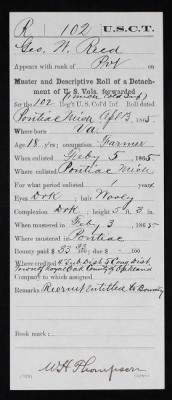 R | 102 | U.S.C.T.
Geo. W. Reed
Appears with rank of Pvt on
Muster and Descriptive Roll of a Detach-
ment of U. S. Vols. forwarded
for the 102 Reg't U.S. Col'd Inf. Roll dated
Pontiac Mich Apl 3, 1865
Where born Va.
Age 18 y'rs; occupation Farmer
When enlisted Feby 3, 1865
Where enlisted Pontiac Mich
For what period enlisted 1 years
Eyes Drk; hair Wooly
Complexion Drk; height 5 ft. 3 in.
When mustered in Feby 3, 1865
Where mustered in Pontiac
Bounty paid $ 33; due $
Where credited 4 Sub Dist 5 Cong Dist
Royal Oak County Oakland
Company to which assigned
Remarks: Recruit entitled to Bounty
Book mark:
W H Thompson